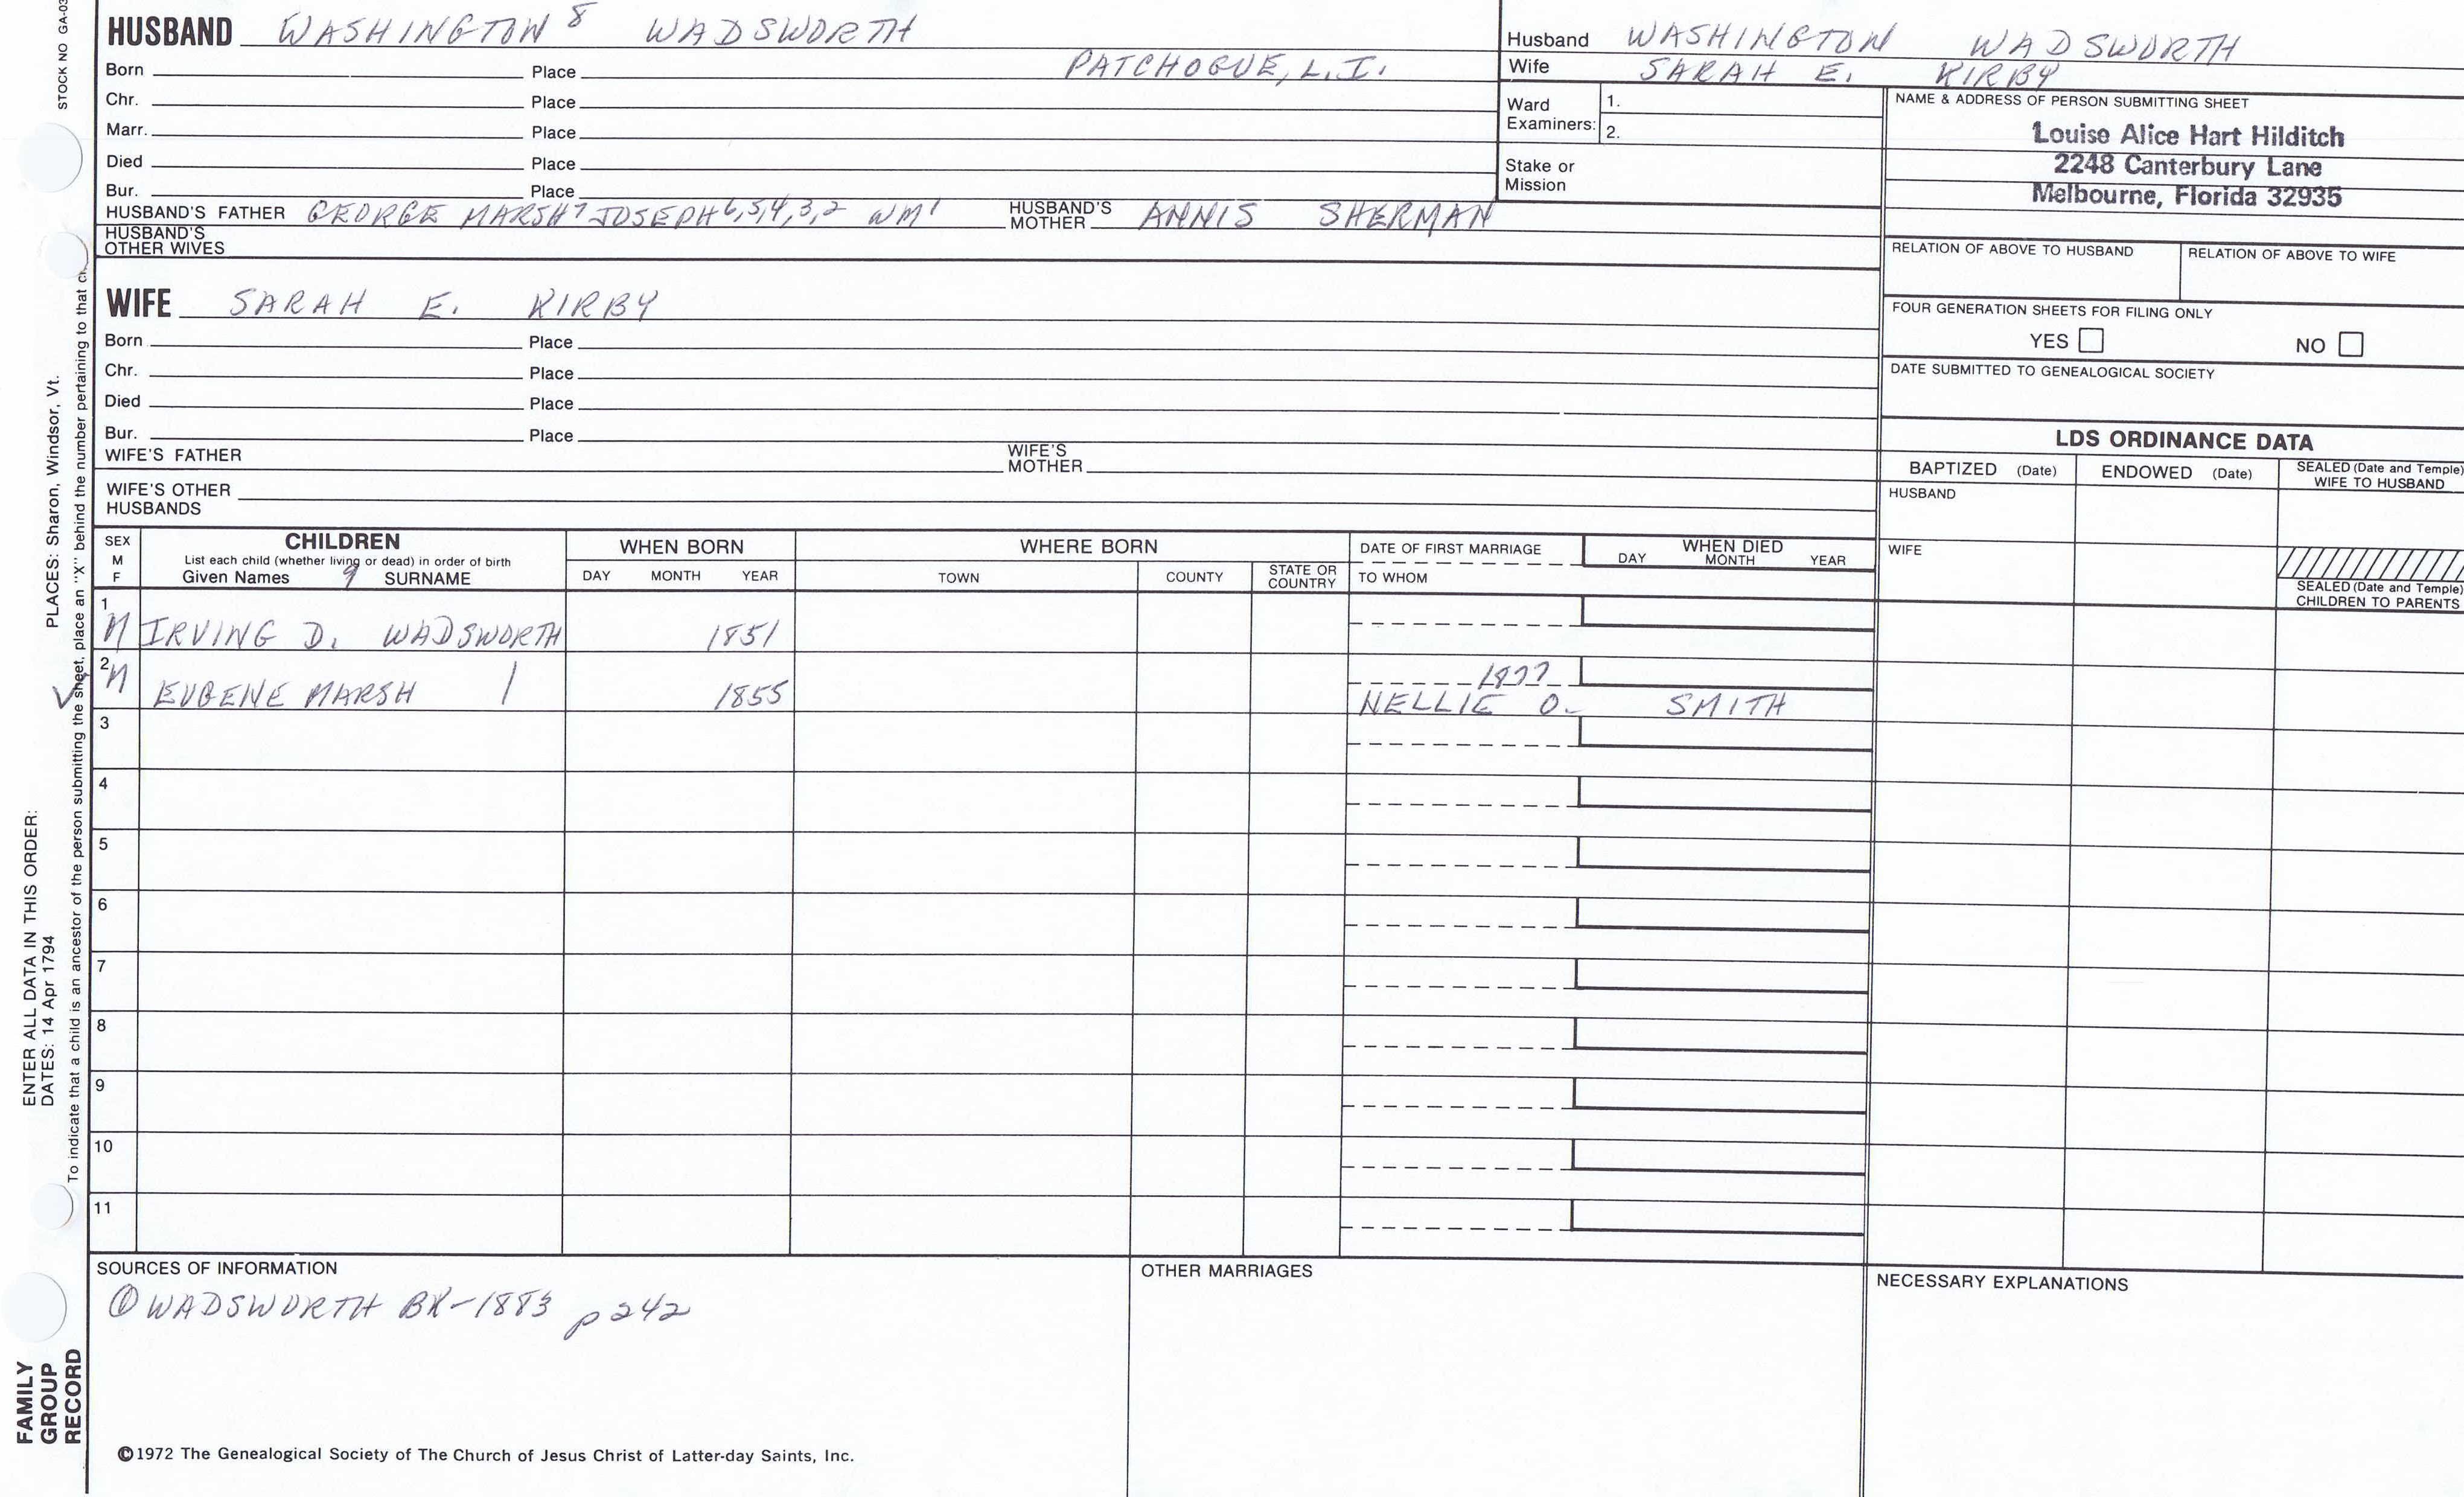 STOCK NO GA-03
HUSBAND WASHINGTON 8 WADSWORTH
PATCHOGUE, L.I.
Born Place
Chr. Place
Marr. Place
Died Place
Bur. Place
HUSBAND'S FATHER GEORGE MARSH 7 JOSEPH 6,5,4,3,2 WM 1 HUSBAND'S MOTHER ANNIS SHERMAN
HUSBAND'S OTHER WIVES
Husband WASHINGTON WADSWORTH
Wife SARAH E. KIRBY
Ward Examiners: 1.
2.
Stake or Mission
NAME & ADDRESS OF PERSON SUBMITTING SHEET
Louise Alice Hart Hilditch
2248 Canterbury Lane
Melbourne, Florida 32935
RELATION OF ABOVE TO HUSBAND RELATION OF ABOVE TO WIFE
FOUR GENERATION SHEETS FOR FILING ONLY
YES NO
DATE SUBMITTED TO GENEALOGICAL SOCIETY
WIFE SARAH E. KIRBY
Born Place
Chr. Place
Died Place
Bur. Place
WIFE'S FATHER WIFE'S MOTHER
WIFE'S OTHER HUSBANDS
LDS ORDINANCE DATA
BAPTIZED (Date) ENDOWED (Date) SEALED (Date and Temple) WIFE TO HUSBAND
HUSBAND
WIFE
SEALED (Date and Temple) CHILDREN TO PARENTS
SEX M F
CHILDREN
List each child (whether living or dead) in order of birth
Given Names 9 SURNAME
WHEN BORN
DAY MONTH YEAR
WHERE BORN
TOWN COUNTY STATE OR COUNTRY
DATE OF FIRST MARRIAGE
TO WHOM
WHEN DIED
DAY MONTH YEAR
1 M IRVING D. WADSWORTH 1851
2 M EUGENE MARSH 1855 1877
NELLIE O. SMITH
3
4
5
6
7
8
9
10
11
SOURCES OF INFORMATION
① WADSWORTH BK-1883 p 242
OTHER MARRIAGES
NECESSARY EXPLANATIONS
©1972 The Genealogical Society of The Church of Jesus Christ of Latter-day Saints, Inc.
FAMILY
GROUP
RECORD
ENTER ALL DATA IN THIS ORDER:
DATES: 14 Apr 1794 PLACES: Sharon, Windsor, Vt.
To indicate that a child is an ancestor of the person submitting the sheet, place an "X" behind the number pertaining to that